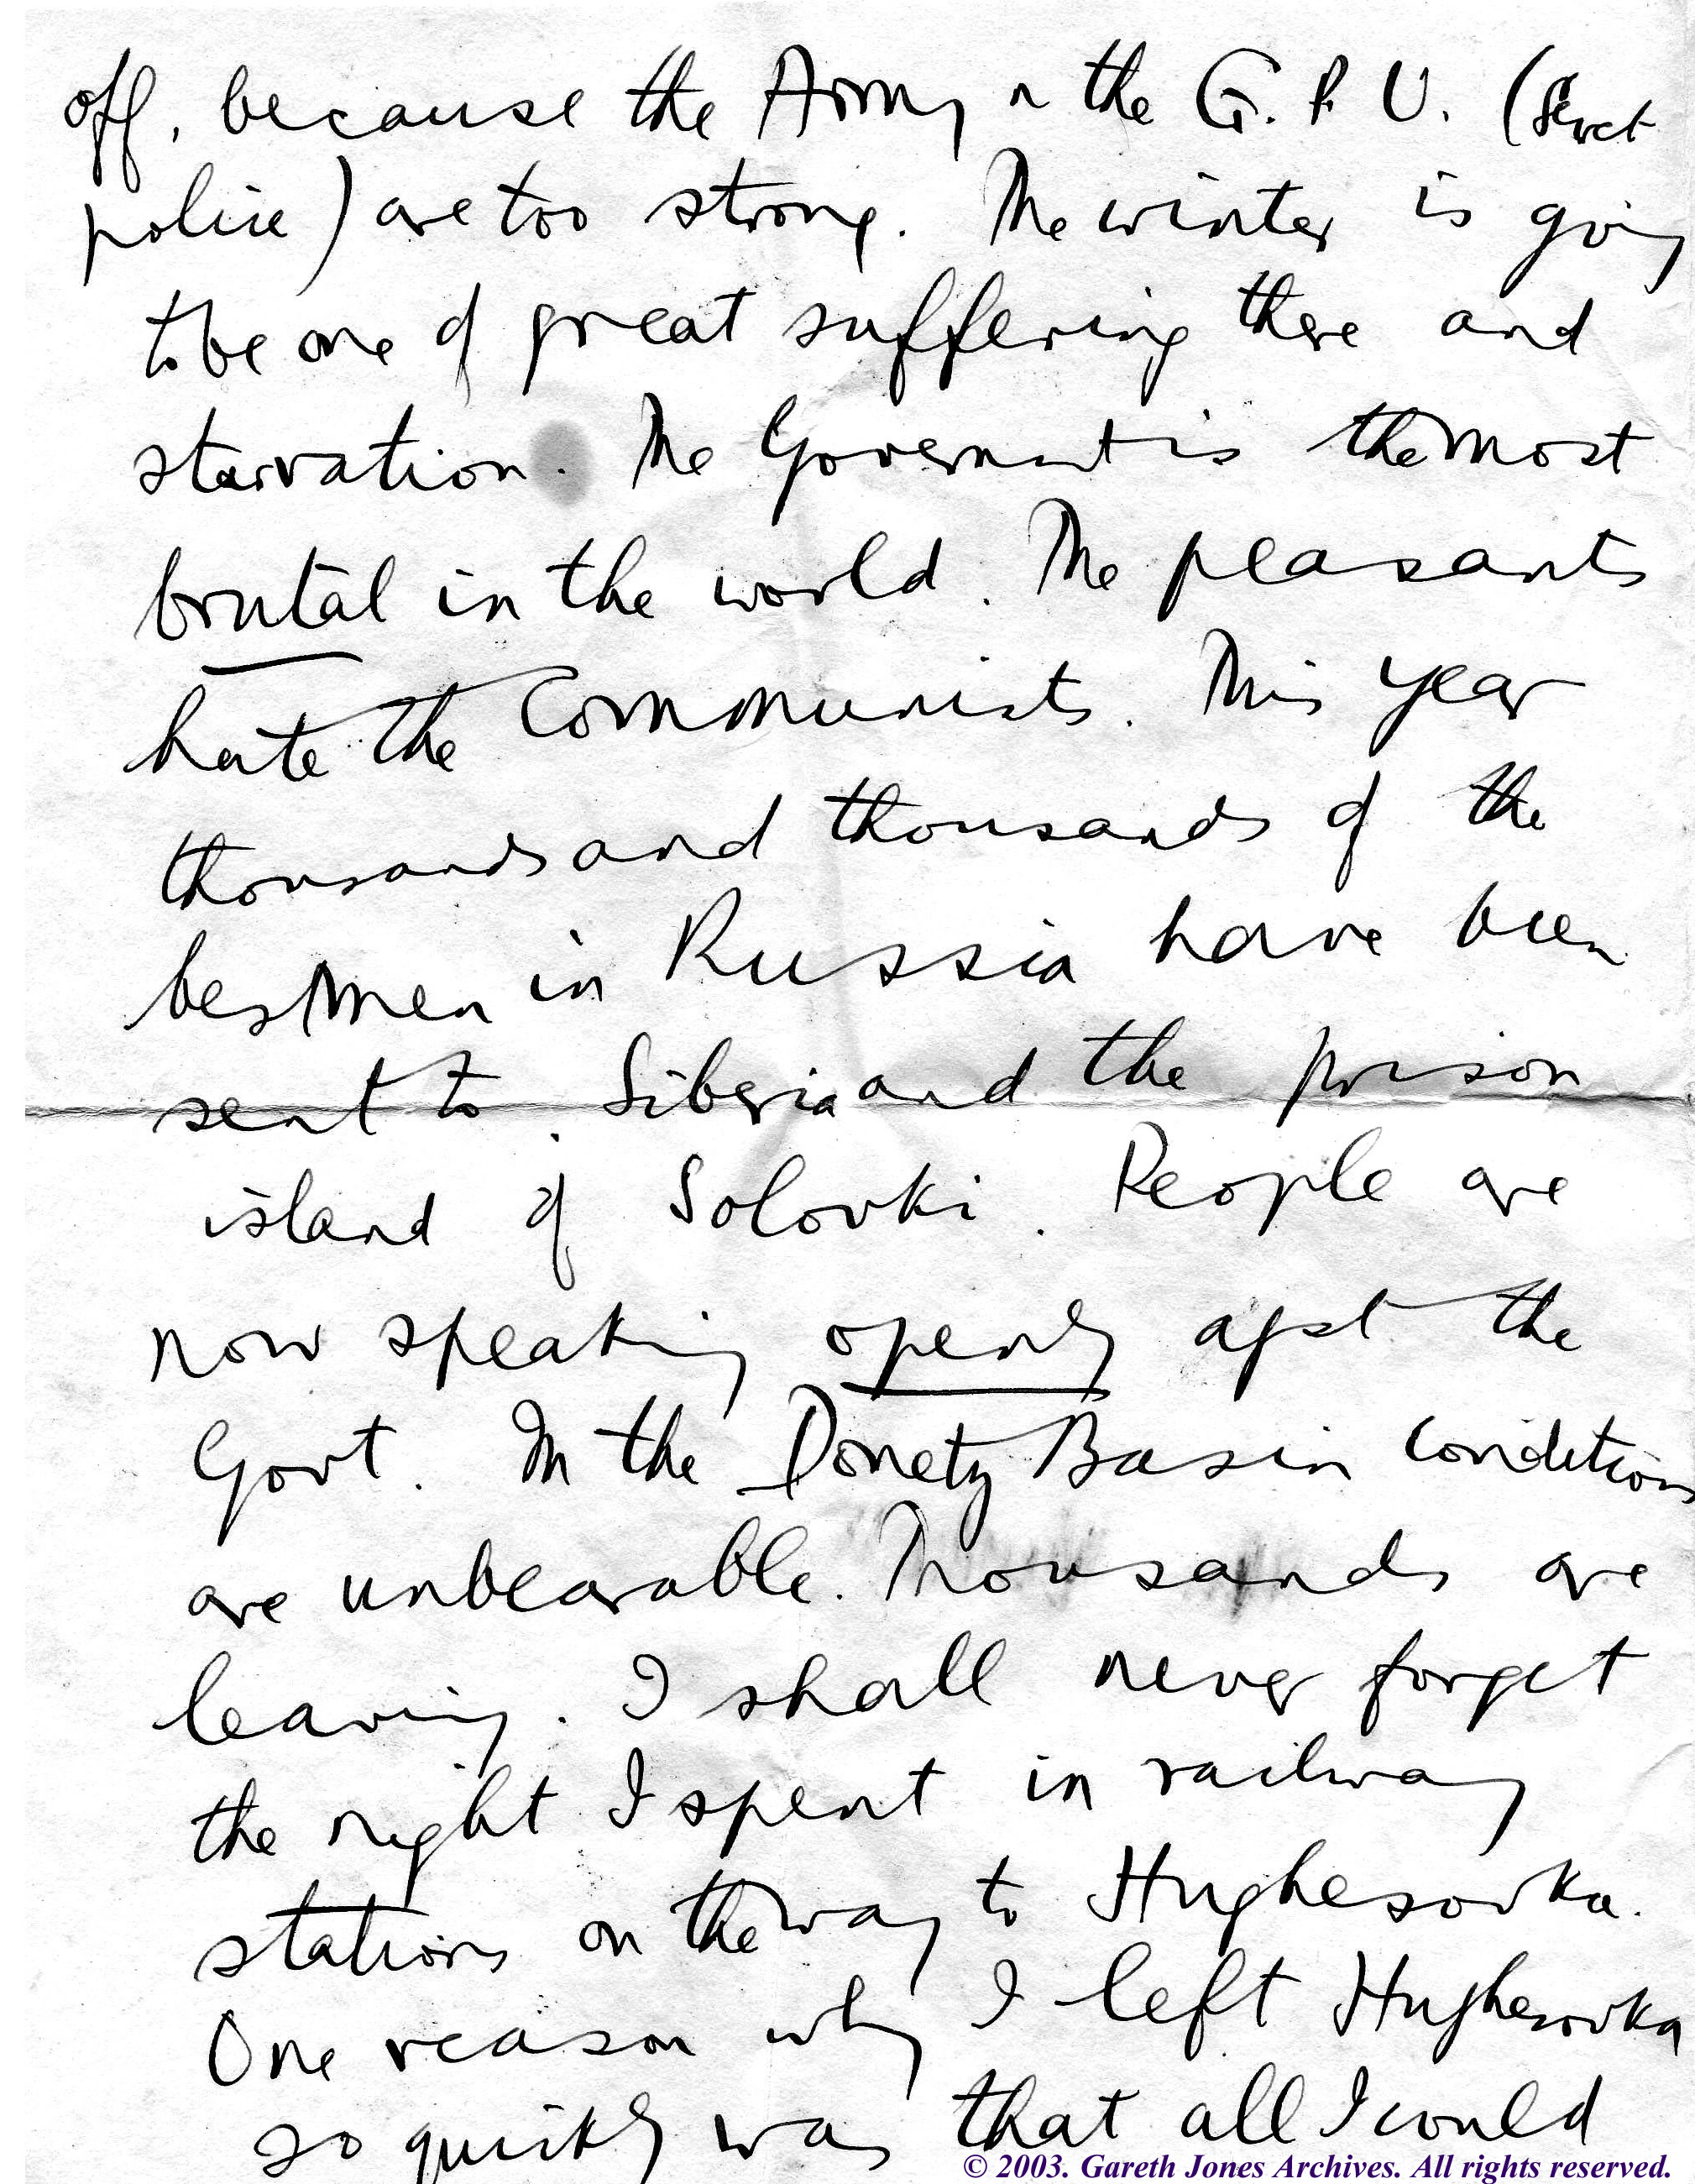 off, because the Army & the G.P.U. (Secret
police) are too strong. The winter is going
to be one of great suffering there and
starvation. The Government is the most
brutal in the world. The peasants
hate the Communists. This year
thousands and thousands of the
best men in Russia have been
sent to Siberia and the prison
island of Solovki. People are
now speaking openly agst the
Govt. In the Donetz Basin conditions
are unbearable. Thousands are
leaving. I shall never forget
the night I spent in railway
stations on the way to Hughesovka.
One reason why I left Hughesovka
so quickly was that all I could
© 2003. Gareth Jones Archives. All rights reserved.